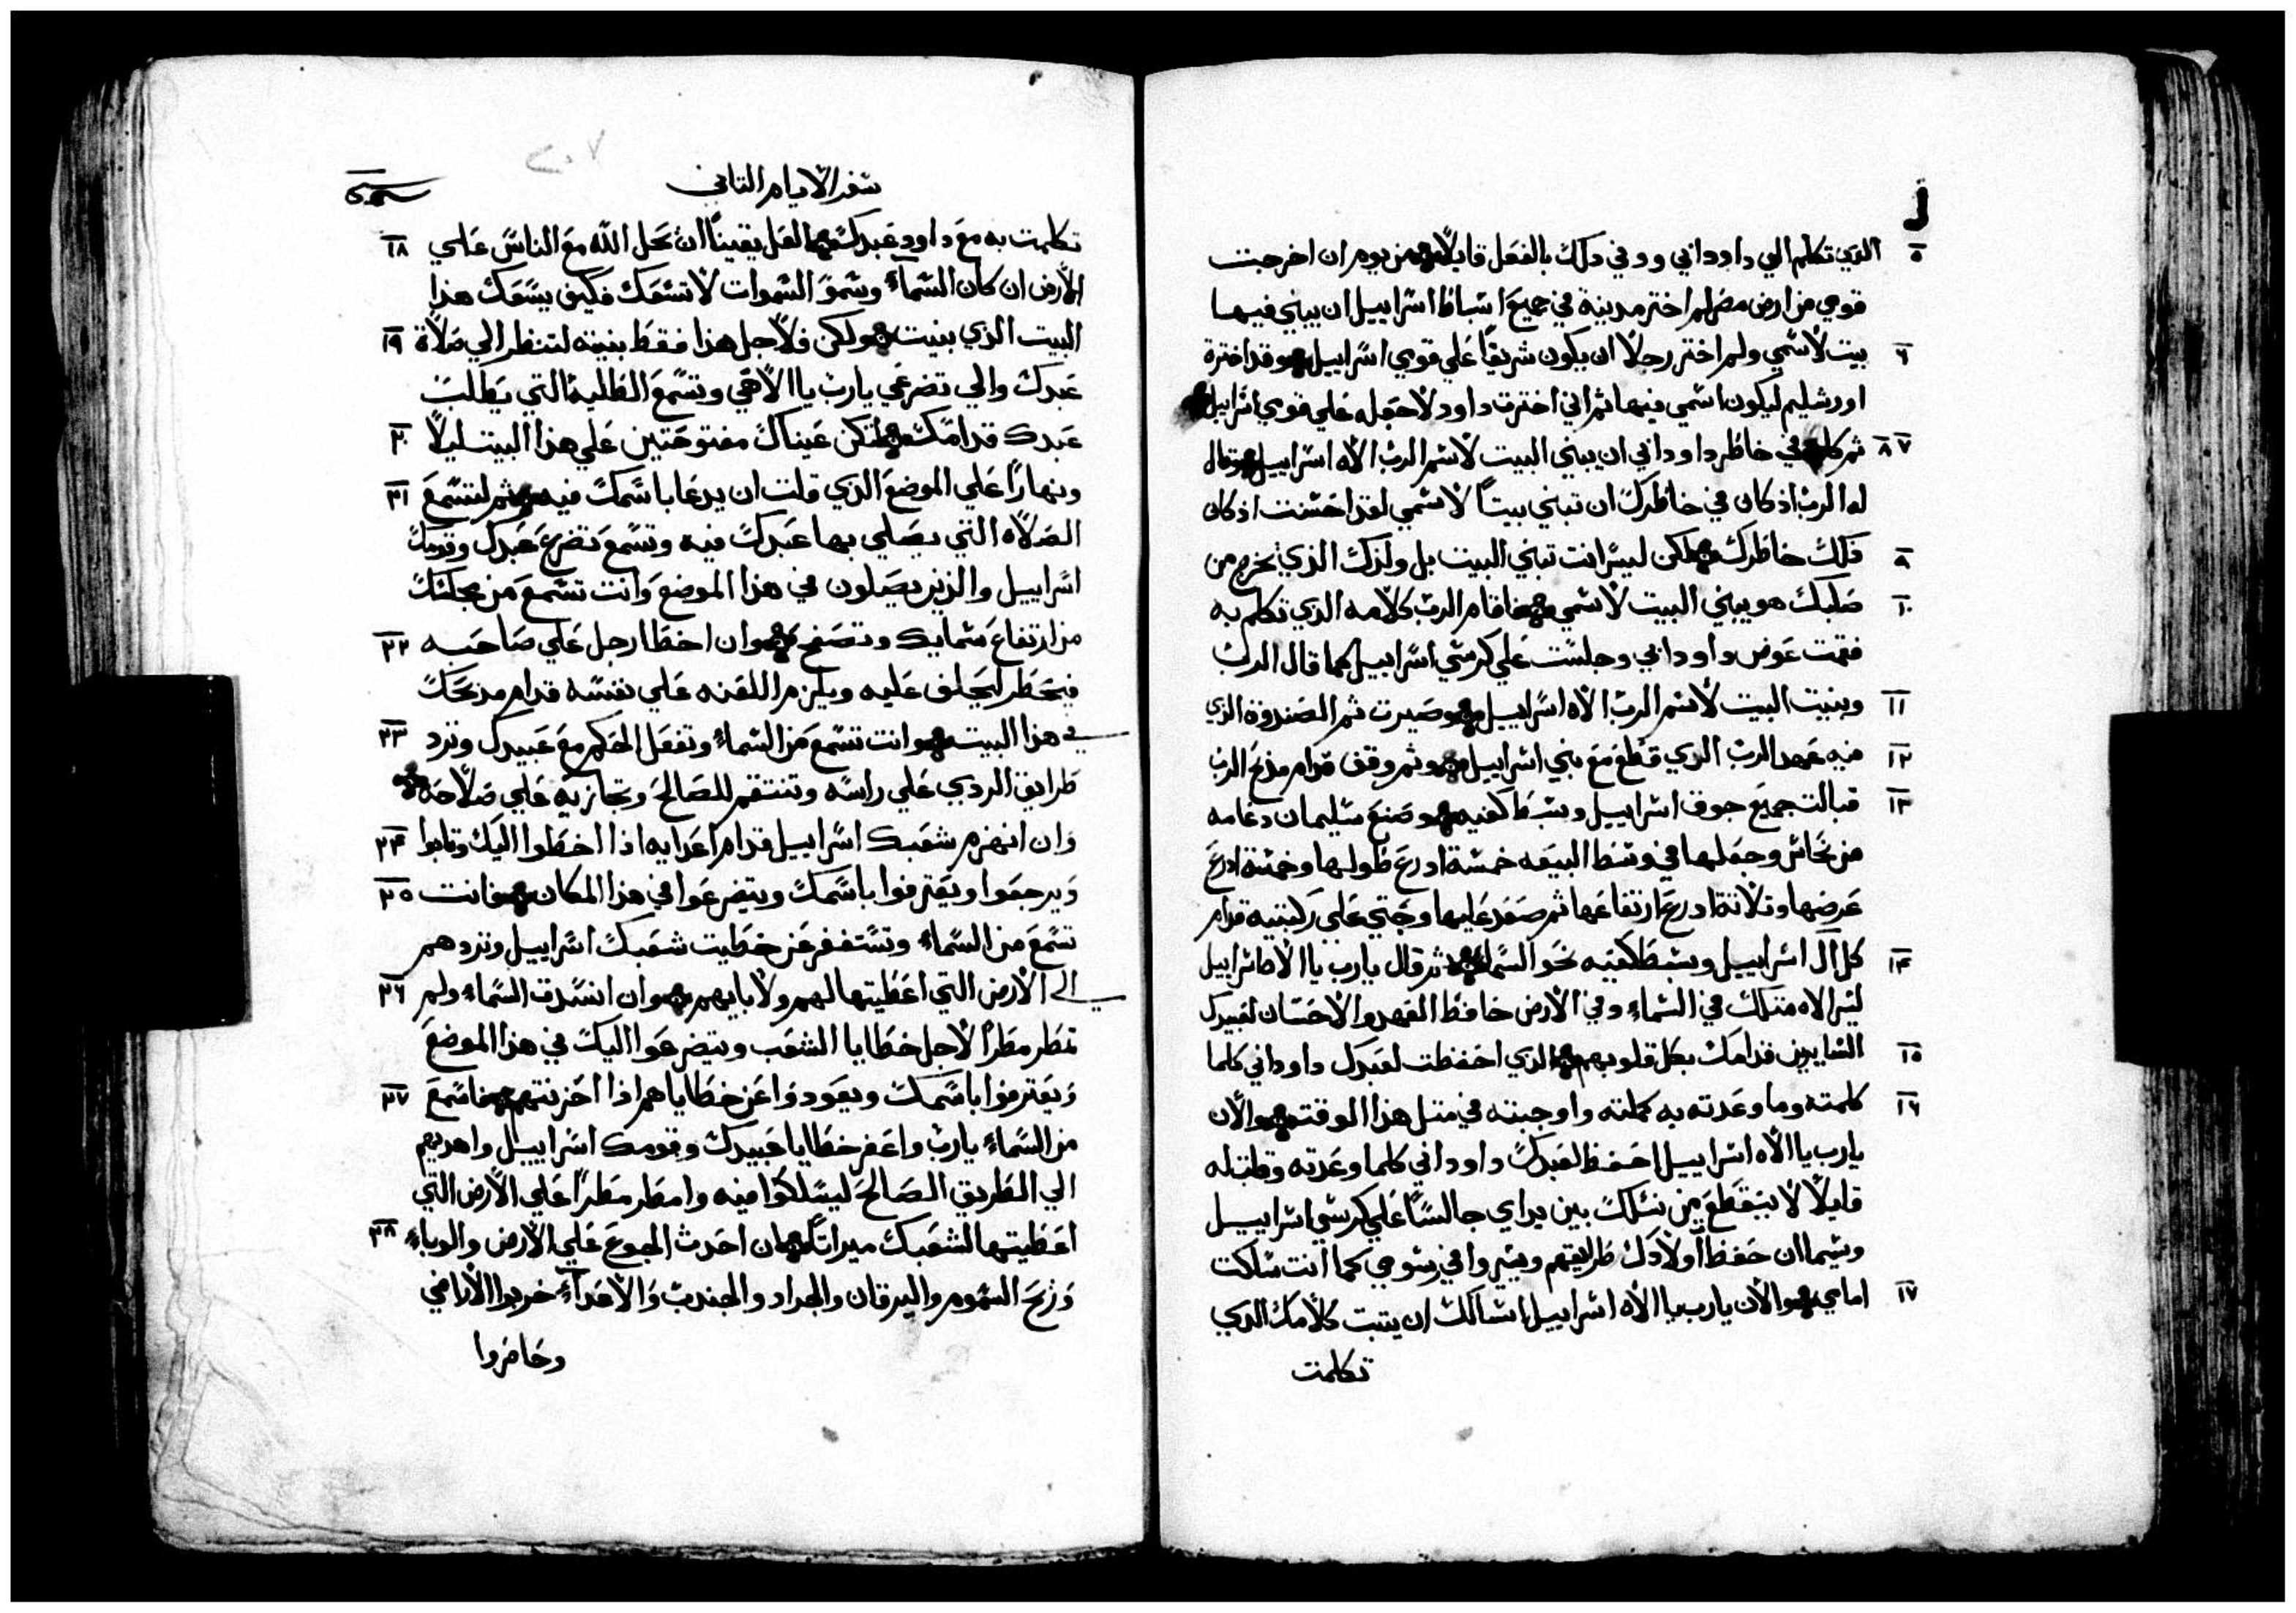 ٥ الذي تكلم الي داود ابي ووفي ذلك بالفعل قايلاً من يوم ان اخرجت
قومي من ارض مصر لم اختر مدينة في جميع اسباط اسراييل ان يبني فيها
٦ بيت لاسمي ولم اختر رجلاً ان يكون شريفاً علي قومي اسراييل وقد اخترة
اورشليم ليكون اسمي فيها ثم اني اخترت داود لاجعله علي قومي اسراييل
٧ ٨ ثم كان في خاطر داود ابي ان يبني البيت لاسم الرب الاه اسراييل وقال
له الرب اذ كان في خاطرك ان تبني بيتاً لاسمي لقد احسنت اذ كان
٩ ذلك خاطرك لكن ليس انت تبني البيت بل ولدك الذي يخرج من
١٠ صلبك هو يبني البيت لاسمي فاقام الرب كلامه الذي تكلم به
فقمت عوض داود ابي وجلست علي كرسي اسراييل كما قال الرب
١١ وبنيت البيت لاسم الرب الاه اسراييل وصيرت ثم الصندوق الذي
١٢ فيه عهد الرب الذي قطع مع بني اسراييل ثم وقف قدام مذبح الرب
١٣ قبالت جميع جوق اسراييل وبسط كفيه وصنع سليمان دعامه
من نحاس وجعلها في وسط البيعه خمسة ادرع طولها وخمسة ادرع
عرضها وثلاثة ادرع ارتفاعها ثم صعد عليها وجثي علي ركبتيه قدام
١٤ كل ال اسراييل وبسط كفيه نحو السماء ثم قال يارب يا الاه اسراييل
ليس الاه مثلك في السماء وفي الارض حافظ العهد والاحسان لعبيدك
١٥ السايرين قدامك بكل قلوبهم الذي احفظت لعبدك داود ابي كلما
١٦ كلمته وما وعدته به كملته واوجبته في مثل هذا الوقت والان
يارب يا الاه اسراييل احفظ لعبدك داود ابي كلما وعدته وقلت له
قايلاً لا ينقطع من نسلك بين يداي جالساً علي كرسي اسراييل
وسيما ان حفظ اولادك طرايقهم ويسيروا في رسومي كما انت سلكت
١٧ امامي والان يارب يا الاه اسراييل اسالك ان يثبت كلامك الذي
تكلمت
سفر الايام الثاني
٢٠٧
تكلمت به مع داود عبدك العل يقيناً ان يحل الله مع الناس علي ١٨
الارض ان كان السماء وسمو السموات لا تسعك فكيف يسعك هذا
البيت الذي بنيت ولكن فلاجل هذا فقط بنيته لتنظر الي صلاة ١٩
عبدك والي تضرعي يارب يا الاهي وتسمع الطلبه التي يطلب
عبدك قدامك لتكن عيناك مفتوحتين علي هذا البيت ليلاً ٢٠
ونهاراً علي الموضع الذي قلت ان يدعا باسمك فيه ثم لتسمع ٢١
الصلاه التي يصلي بها عبدك فيه وتسمع تضرع عبدك وقومك
اسراييل والذين يصلون في هذا الموضع وانت تسمع من محلتك
من ارتفاع سمايك وتصفح وان اخطا رجل علي صاحبه ٢٢
فيحظر ليحلف عليه ويلزم اللعنه علي نفسه قدام مذبحك
في هذا البيت وانت تسمع من السماء وتفعل الحكم مع عبيدك وترد ٢٣
طرايق الردي علي راسه وتنتقم للصالح وتجازيه علي صلاحه
وان انهزم شعبك اسراييل قدام اعدايه اذا اخطوا اليك وتابوا ٢٤
ويرجعوا ويعترفوا باسمك ويتضرعوا في هذا المكان فانت ٢٥
تسمع من السماء وتستغفر عن خطايت شعبك اسراييل وتردهم
الي الارض التي اعطيتها لهم ولابايهم وان انسدت السماء ولم ٢٦
تمطر مطراً لاجل خطايا الشعب ويتضرعوا اليك في هذا الموضع
ويعترفوا باسمك ويعودوا عن خطاياهم اذا احزنتهم فاسمع ٢٧
من السماء يارب واغفر خطايا عبيدك وقومك اسراييل واهديهم
الي الطريق الصالح ليسلكوا فيه وامطر مطراً علي الارض التي
اعطيتها لشعبك ميراثاً ان احدث الجوع علي الارض والوباء ٢٨
وريح السموم واليرقان والجراد والجندب والاعداء خربوا الاراضي
وحاصروا